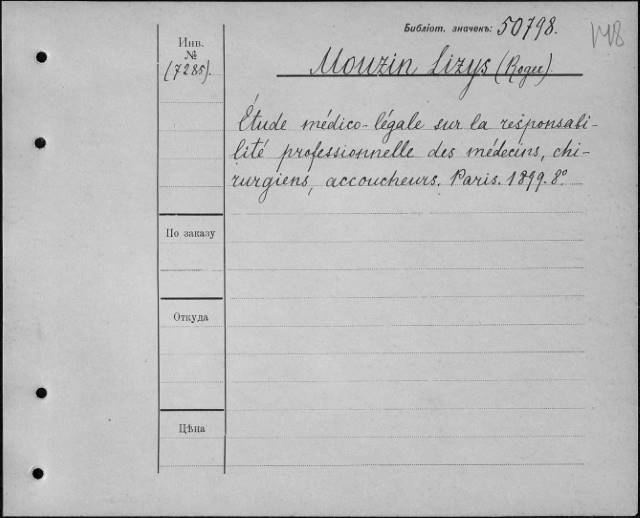 Библіот. значекъ: 50798.
Инв.
№
(7285).
Mouzin Lizys (Roger).
Étude médico-légale sur la responsabi-
lité professionnelle des médecins, chi-
rurgiens, accoucheurs. Paris. 1899. 8º
По заказу
Откуда
Цѣна